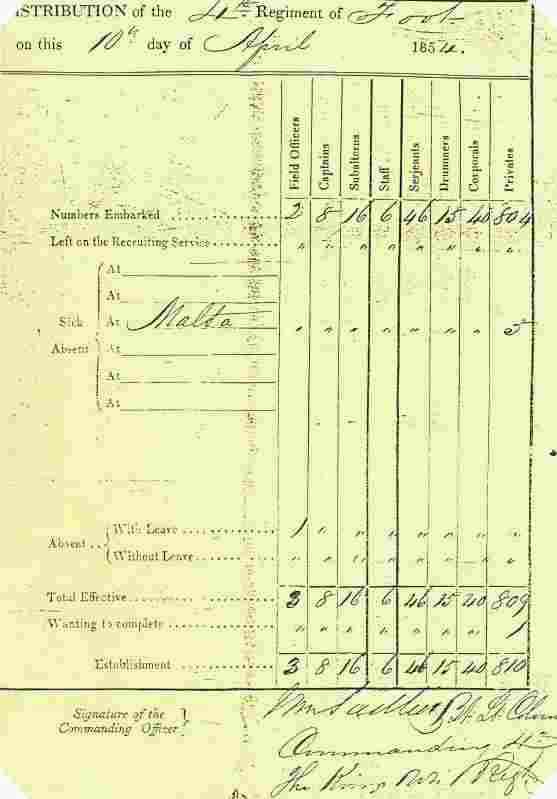 ISTRIBUTION of the 4th Regiment of Foot
on this 10th day of April 1854.
Field Officers Captains Subalterns Staff Serjeants Drummers Corporals Privates
Numbers Embarked 2 8 16 6 46 15 40 804
Left on the Recruiting Service " " " " " " " "
Sick Absent
At
At
At Malta " " " " " " " 5
At
At
At
Absent With Leave 1 " " " " " " "
Without Leave " " " " " " " "
Total Effective 3 8 16 6 46 15 40 809
Wanting to complete " " " " " " " 1
Establishment 3 8 16 6 46 15 40 810
Signature of the
Commanding Officer
Commanding 4th
The Kings Regt